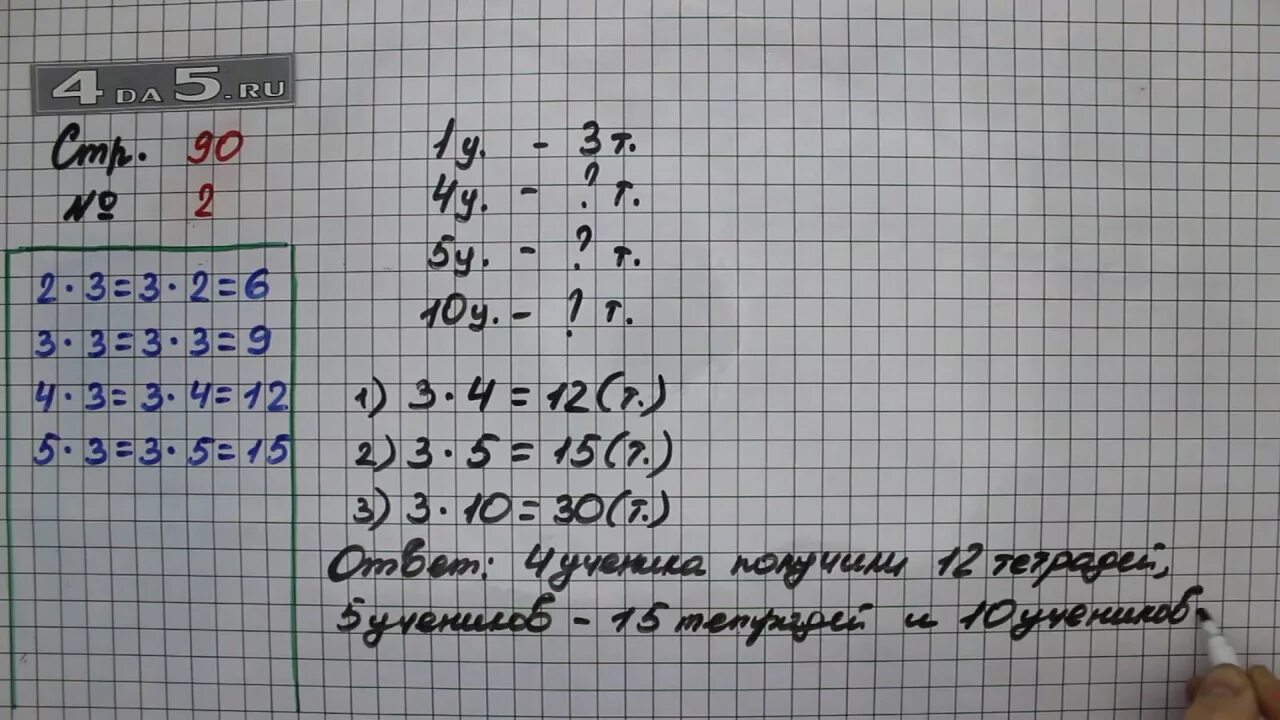 4DA5.RU
Стр. 90
№ 2
2·3=3·2=6
3·3=3·3=9
4·3=3·4=12
5·3=3·5=15
1у. - 3 т.
4у. - ? т.
5у. - ? т.
10у. - ? т.
1) 3·4=12(т.)
2) 3·5=15(т.)
3) 3·10=30(т.)
Ответ: 4 ученика получили 12 тетрадей,
5 учеников - 15 тетрадей и 10 учеников-